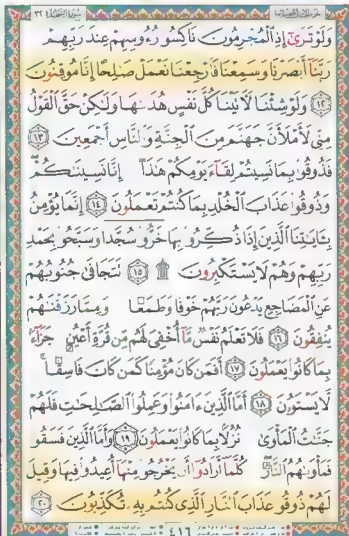 سورة السجدة ٣٢
وَلَوْ تَرَىٰٓ إِذِ ٱلْمُجْرِمُونَ نَاكِسُوا۟ رُءُوسِهِمْ عِندَ رَبِّهِمْ
رَبَّنَآ أَبْصَرْنَا وَسَمِعْنَا فَٱرْجِعْنَا نَعْمَلْ صَٰلِحًا إِنَّا مُوقِنُونَ
﴿١٢﴾ وَلَوْ شِئْنَا لَءَاتَيْنَا كُلَّ نَفْسٍ هُدَىٰهَا وَلَٰكِنْ حَقَّ ٱلْقَوْلُ
مِنِّى لَأَمْلَأَنَّ جَهَنَّمَ مِنَ ٱلْجِنَّةِ وَٱلنَّاسِ أَجْمَعِينَ ﴿١٣﴾
فَذُوقُوا۟ بِمَا نَسِيتُمْ لِقَآءَ يَوْمِكُمْ هَٰذَآ إِنَّا نَسِينَٰكُمْ
وَذُوقُوا۟ عَذَابَ ٱلْخُلْدِ بِمَا كُنتُمْ تَعْمَلُونَ ﴿١٤﴾ إِنَّمَا يُؤْمِنُ
بِـَٔايَٰتِنَا ٱلَّذِينَ إِذَا ذُكِّرُوا۟ بِهَا خَرُّوا۟ سُجَّدًا وَسَبَّحُوا۟ بِحَمْدِ
رَبِّهِمْ وَهُمْ لَا يَسْتَكْبِرُونَ ۩ ﴿١٥﴾ تَتَجَافَىٰ جُنُوبُهُمْ
عَنِ ٱلْمَضَاجِعِ يَدْعُونَ رَبَّهُمْ خَوْفًا وَطَمَعًا وَمِمَّا رَزَقْنَٰهُمْ
يُنفِقُونَ ﴿١٦﴾ فَلَا تَعْلَمُ نَفْسٌ مَّآ أُخْفِىَ لَهُم مِّن قُرَّةِ أَعْيُنٍ جَزَآءًۢ
بِمَا كَانُوا۟ يَعْمَلُونَ ﴿١٧﴾ أَفَمَن كَانَ مُؤْمِنًا كَمَن كَانَ فَاسِقًا ۚ
لَّا يَسْتَوُۥنَ ﴿١٨﴾ أَمَّا ٱلَّذِينَ ءَامَنُوا۟ وَعَمِلُوا۟ ٱلصَّٰلِحَٰتِ فَلَهُمْ
جَنَّٰتُ ٱلْمَأْوَىٰ نُزُلًۢا بِمَا كَانُوا۟ يَعْمَلُونَ ﴿١٩﴾ وَأَمَّا ٱلَّذِينَ فَسَقُوا۟
فَمَأْوَىٰهُمُ ٱلنَّارُ ۖ كُلَّمَآ أَرَادُوٓا۟ أَن يَخْرُجُوا۟ مِنْهَآ أُعِيدُوا۟ فِيهَا وَقِيلَ
لَهُمْ ذُوقُوا۟ عَذَابَ ٱلنَّارِ ٱلَّذِى كُنتُم بِهِۦ تُكَذِّبُونَ ﴿٢٠﴾
٤١٦